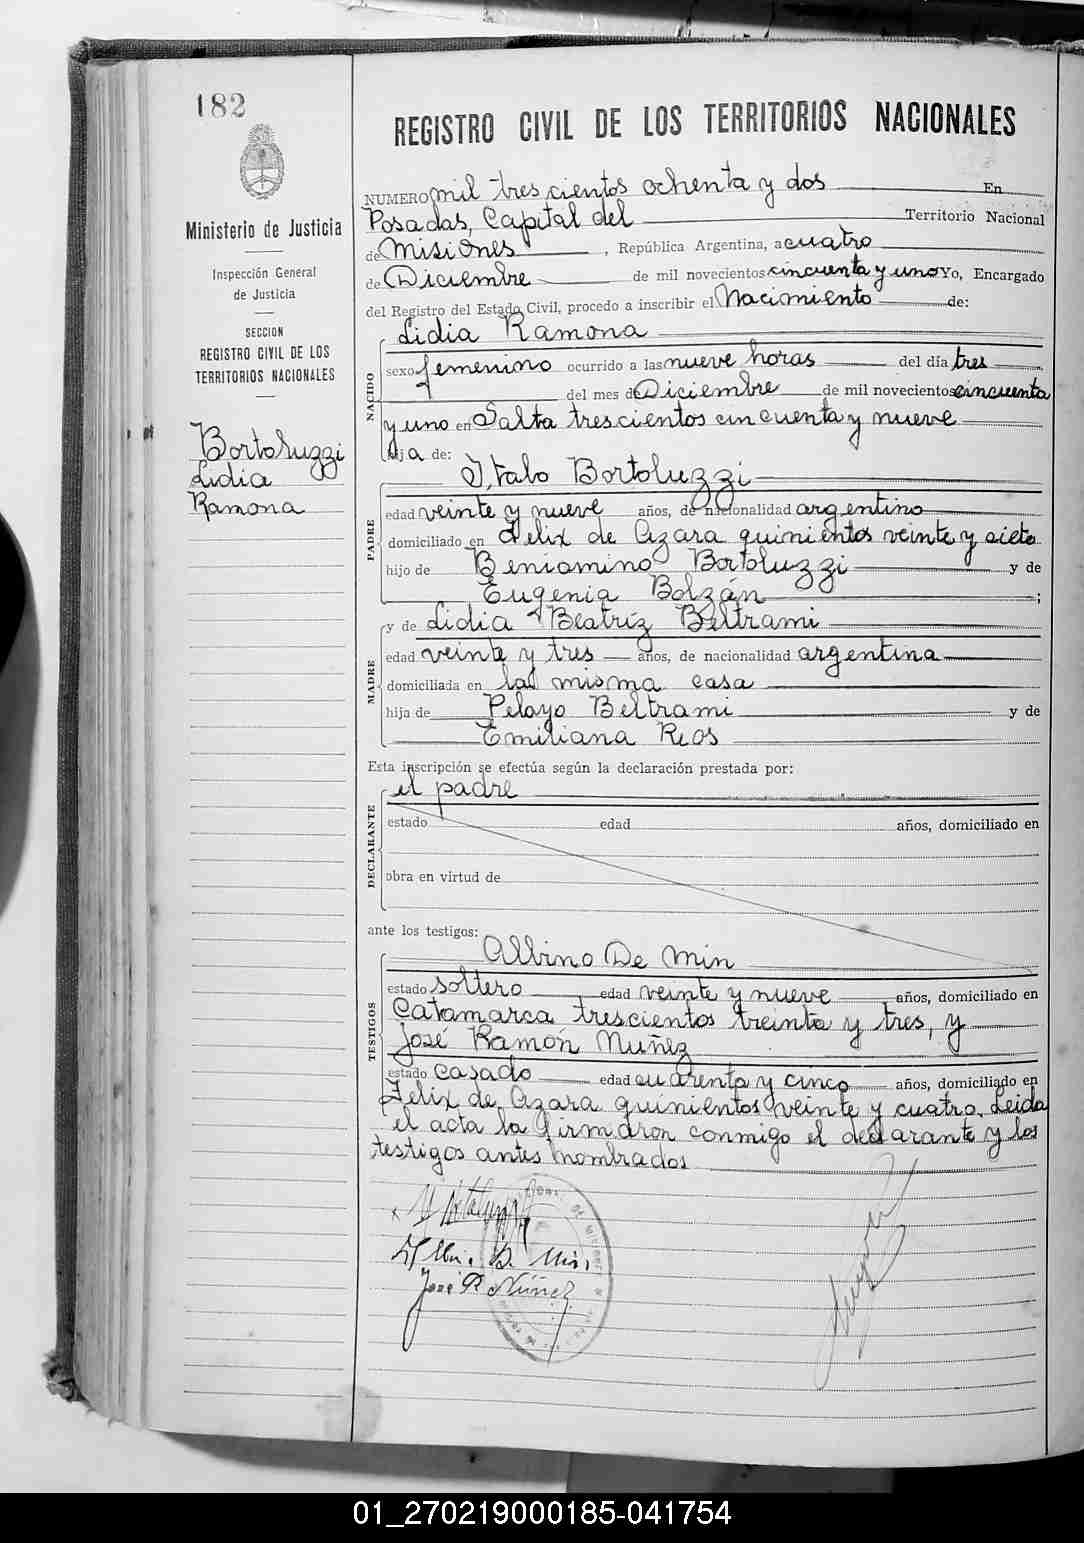 182
REGISTRO CIVIL DE LOS TERRITORIOS NACIONALES
Ministerio de Justicia
Inspección General
de Justicia
SECCION
REGISTRO CIVIL DE LOS
TERRITORIOS NACIONALES
Bortoluzzi
Lidia
Ramona
NUMERO mil trescientos ochenta y dos En
Posadas, Capital del Territorio Nacional
de Misiones, República Argentina, a cuatro
de Diciembre de mil novecientos cincuenta y uno Yo, Encargado
del Registro del Estado Civil, procedo a inscribir el Nacimiento de:
NACIDO
Lidia Ramona
sexo femenino ocurrido a las nueve horas del día tres
del mes de Diciembre de mil novecientos cincuenta
y uno en Salta trescientos cincuenta y nueve
hija de:
PADRE
Italo Bortoluzzi
edad veinte y nueve años, de nacionalidad argentino
domiciliado en Felix de Azara quinientos veinte y siete
hijo de Beniamino Bortoluzzi y de
Eugenia Bolzán ;
MADRE
y de Lidia Beatríz Beltrami
edad veinte y tres años, de nacionalidad argentina
domiciliada en la misma casa
hija de Pelayo Beltrami y de
Emiliana Rios
Esta inscripción se efectúa según la declaración prestada por:
DECLARANTE
el padre
estado edad años, domiciliado en
obra en virtud de
ante los testigos:
TESTIGOS
Albino De Min
estado soltero edad veinte y nueve años, domiciliado en
Catamarca trescientos treinta y tres, y
José Ramón Nuñez
estado casado edad cuarenta y cinco años, domiciliado en
Felix de Azara quinientos veinte y cuatro. Leida
el acta la firmaron conmigo el declarante y los
testigos antes nombrados
José R Núñez
01_270219000185-041754